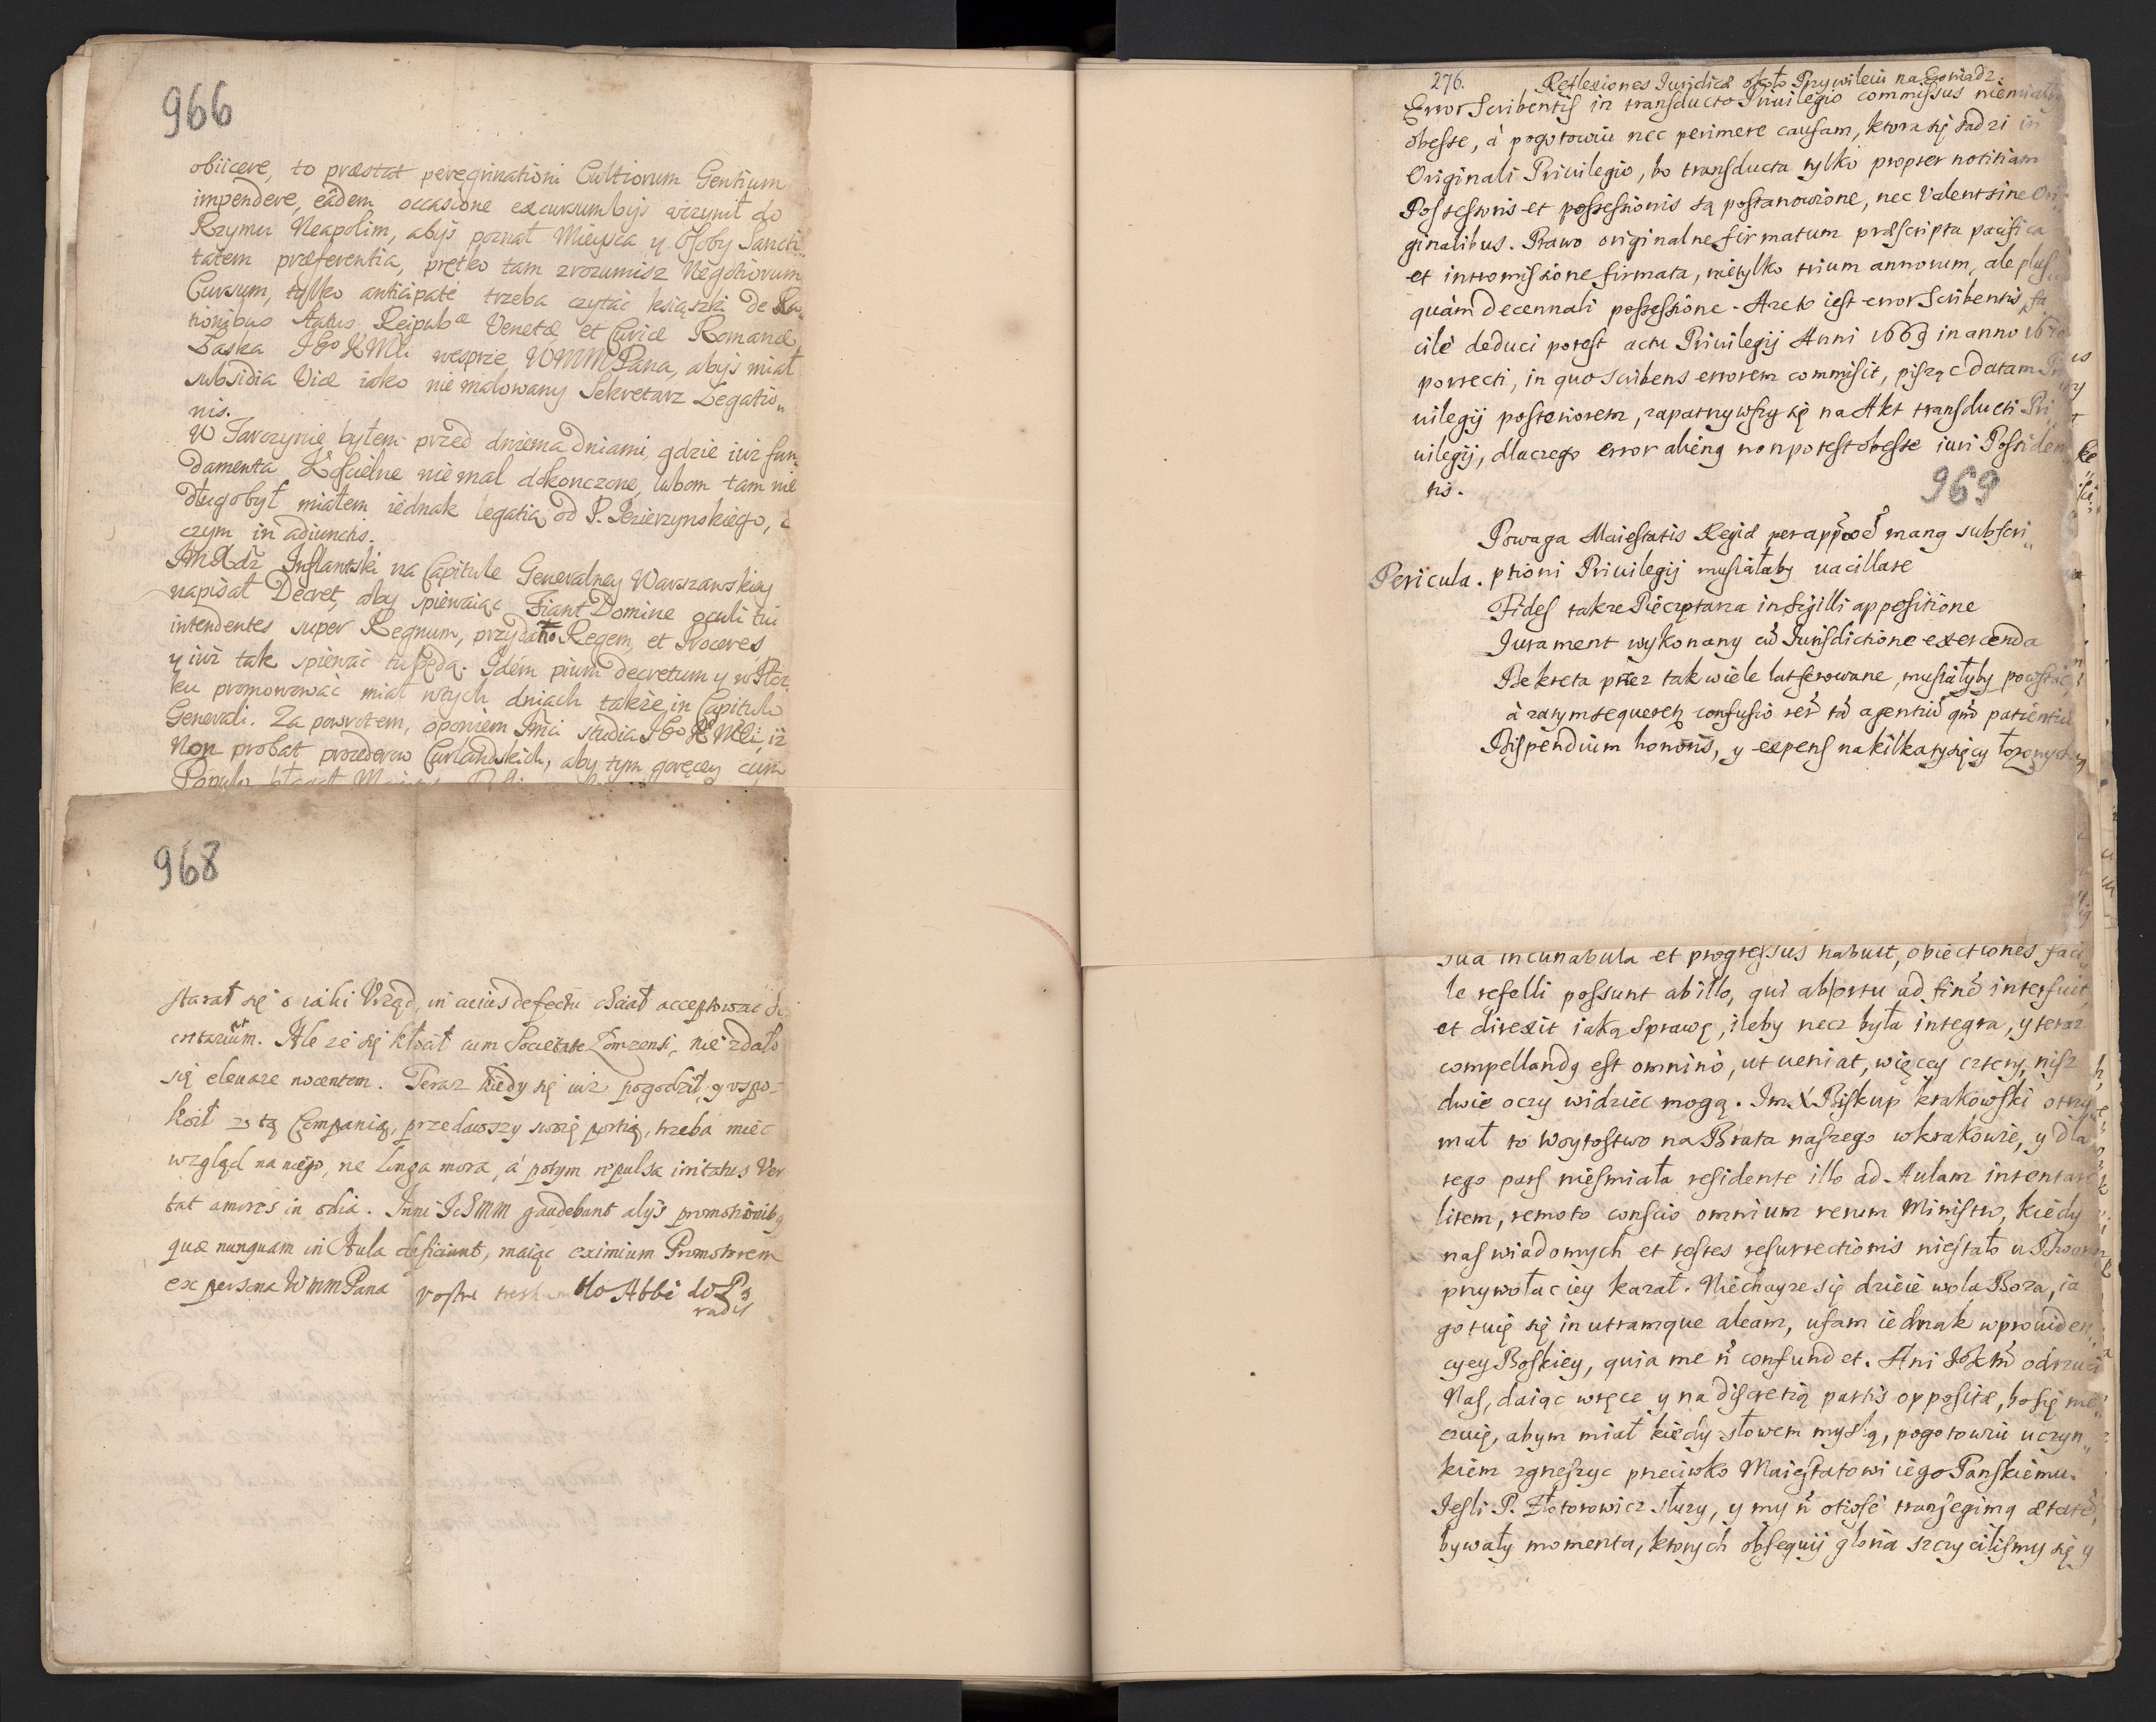 966
obiicere, to præstat peregrinationi Cultiorum Gentium
impendere, eâdem occasione excursum byś uczynił do
Rzymu Neapolim, abyś poznał Mieysca y Osoby Sancti„
tatem præferentia, prętko tam zrozumisz Negotiorum
Cursum, tylko anticipatè trzeba czytać ksiąszki de Ra„
tionibus status Reipubæ Venetæ, et Curiæ Romanæ,
Łaska JKMci wesprze WMM Pana, abyś miał
subsidia Viæ iako nie malowany Sekretarz Legatio„
nis.
W Tarczynie byłem przed dwiema dniami, gdzie iuż fun„
damenta Kościelne nie mal dokonczone, lubom tam nie
długo był miałem iednak legatią od P. Jezierzynskiego, o
czym in adiunctis.
Im Xdz Inflantski na Capitule Generalney Warszawskiey
napisał Decret, aby spiewaiąc Fiant Domine oculi tui
intendentes super Regnum, przydano Regem, et Proceres
y iuż tak spiewać tu będą. Idem pium decretum y w Płoc„
ku promowować miał w tych dniach także in Capitulo
Generali. Za powrotem, oponiem Imci studia JKMci, iż
Non probat procederow Curlandskich, aby tym goręcey cum
Populo błagał
968
starał się o iaki Vrząd, in cuius defectu chciał acceptować Se
cretariatum. Ale że się kłocił cum Societate Łomzensi, nie zdało
się eleuare nocentem. Teraz kiedy się iuż pogodził, y vspo-
koił zo tą Companią, przedawszy swoię portią, trzeba miec
wzgląd na niego, ne longa mora, á potym repulsa irritatus Ver
tat amores in odia. Inni IchMM gaudebunt alijs promotionibq
quæ nunquam in Aula deficiunt, maiąc eximium Promotorem
ex persona WMM Pana vostre tres hum do Abbé do Pa
radis
276. Reflexiones Iuridicæ około Przywileiu na Goniądz.
Error Scribentis in transducto Priuilegio commissus niemiałby
obesse, á pogotowiu nec perimere causam, ktora się sadzi in
Originali Priuilegio, bo transducta tylko propter notitiam
Possessoris et possessionis są postanowione, nec Valent sine Ori„
ginalibus. Prawo originalne firmatum præscripta pacifica
et intromissione firmata, nietylko trium annorum, ale plus
quàm decennali possessione. A że to iest error Scribentis, fa
cilè deduci potest actu Priuilegij Anni 1669 in anno 1670
porrecti, in quo scribens errorem commisit, pisząc datam Pri
uilegij posteriorem, zapatrzywszy się na Akt transducti Pri
uilegij, dlaczego error alienq non potest obesse iuri Possiden„
tis.
969
Powaga Maiestatis Regiæ per approbãe mang subscri„
Pericula. ptioni Priuilegij musiałaby uacillare
Fides także Pieczętarza in sigilli appositione
Jurament wykonany cũ Iurisdictione exercenda
Dekreta przez tak wiele lat ferowane, musiałyby powstać
à zatym sequeretq confusio rerũ tã agentiũ qm patientiũ
Dispendium honoris, y expens na kilka tysięcy łożonych
sua incunabula et progressus habuit, obiectiones faci„
le refelli possunt ab illo, qui ab ortu ad finẽ interfuit
et direxit iaką Sprawę, ileby rzecz była integra, y teraz
compellandq est omninò, ut ueniat, więcey cztery, nisz
dwie oczy widziec mogą. Im X Biskup krakowski otrzy„
mał to woytostwo na Brata naszego w krakowie, y dla
tego pars nieśmiała residente illo ad Aulam intentare
litem, remoto conscio omnium rerum Ministro, kiedy
nas wiadomych et testes resurrectionis niestało u Dworu
przywołac iey kazał. Niechayże się dzieie wola Boza, ia
gotuię się in utramque aleam, ufam iednak w prouiden„
cyey Boskiey, quia me ñ confundet. Ani JoKM odrzuci
Nas, daiąc w ręce y na discretią partis oppositæ, bo się nie
czuię, abym miał kiedy słowem myslą, pogotowiu uczyn„
kiem zgrzeszyc przeciwko Maiestatowi iego Panskiemu.
Jesli P. Złotorowicz służy, y my ñ otiosè transegimq ætatẽ,
bywały momenta, ktorych obsequij gloria szczycilismy się y